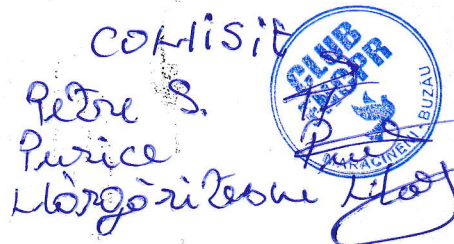 COMISIE
Petre S.
Purice
Mărgăritescu
CLUB
MARACINENI - BUZAU